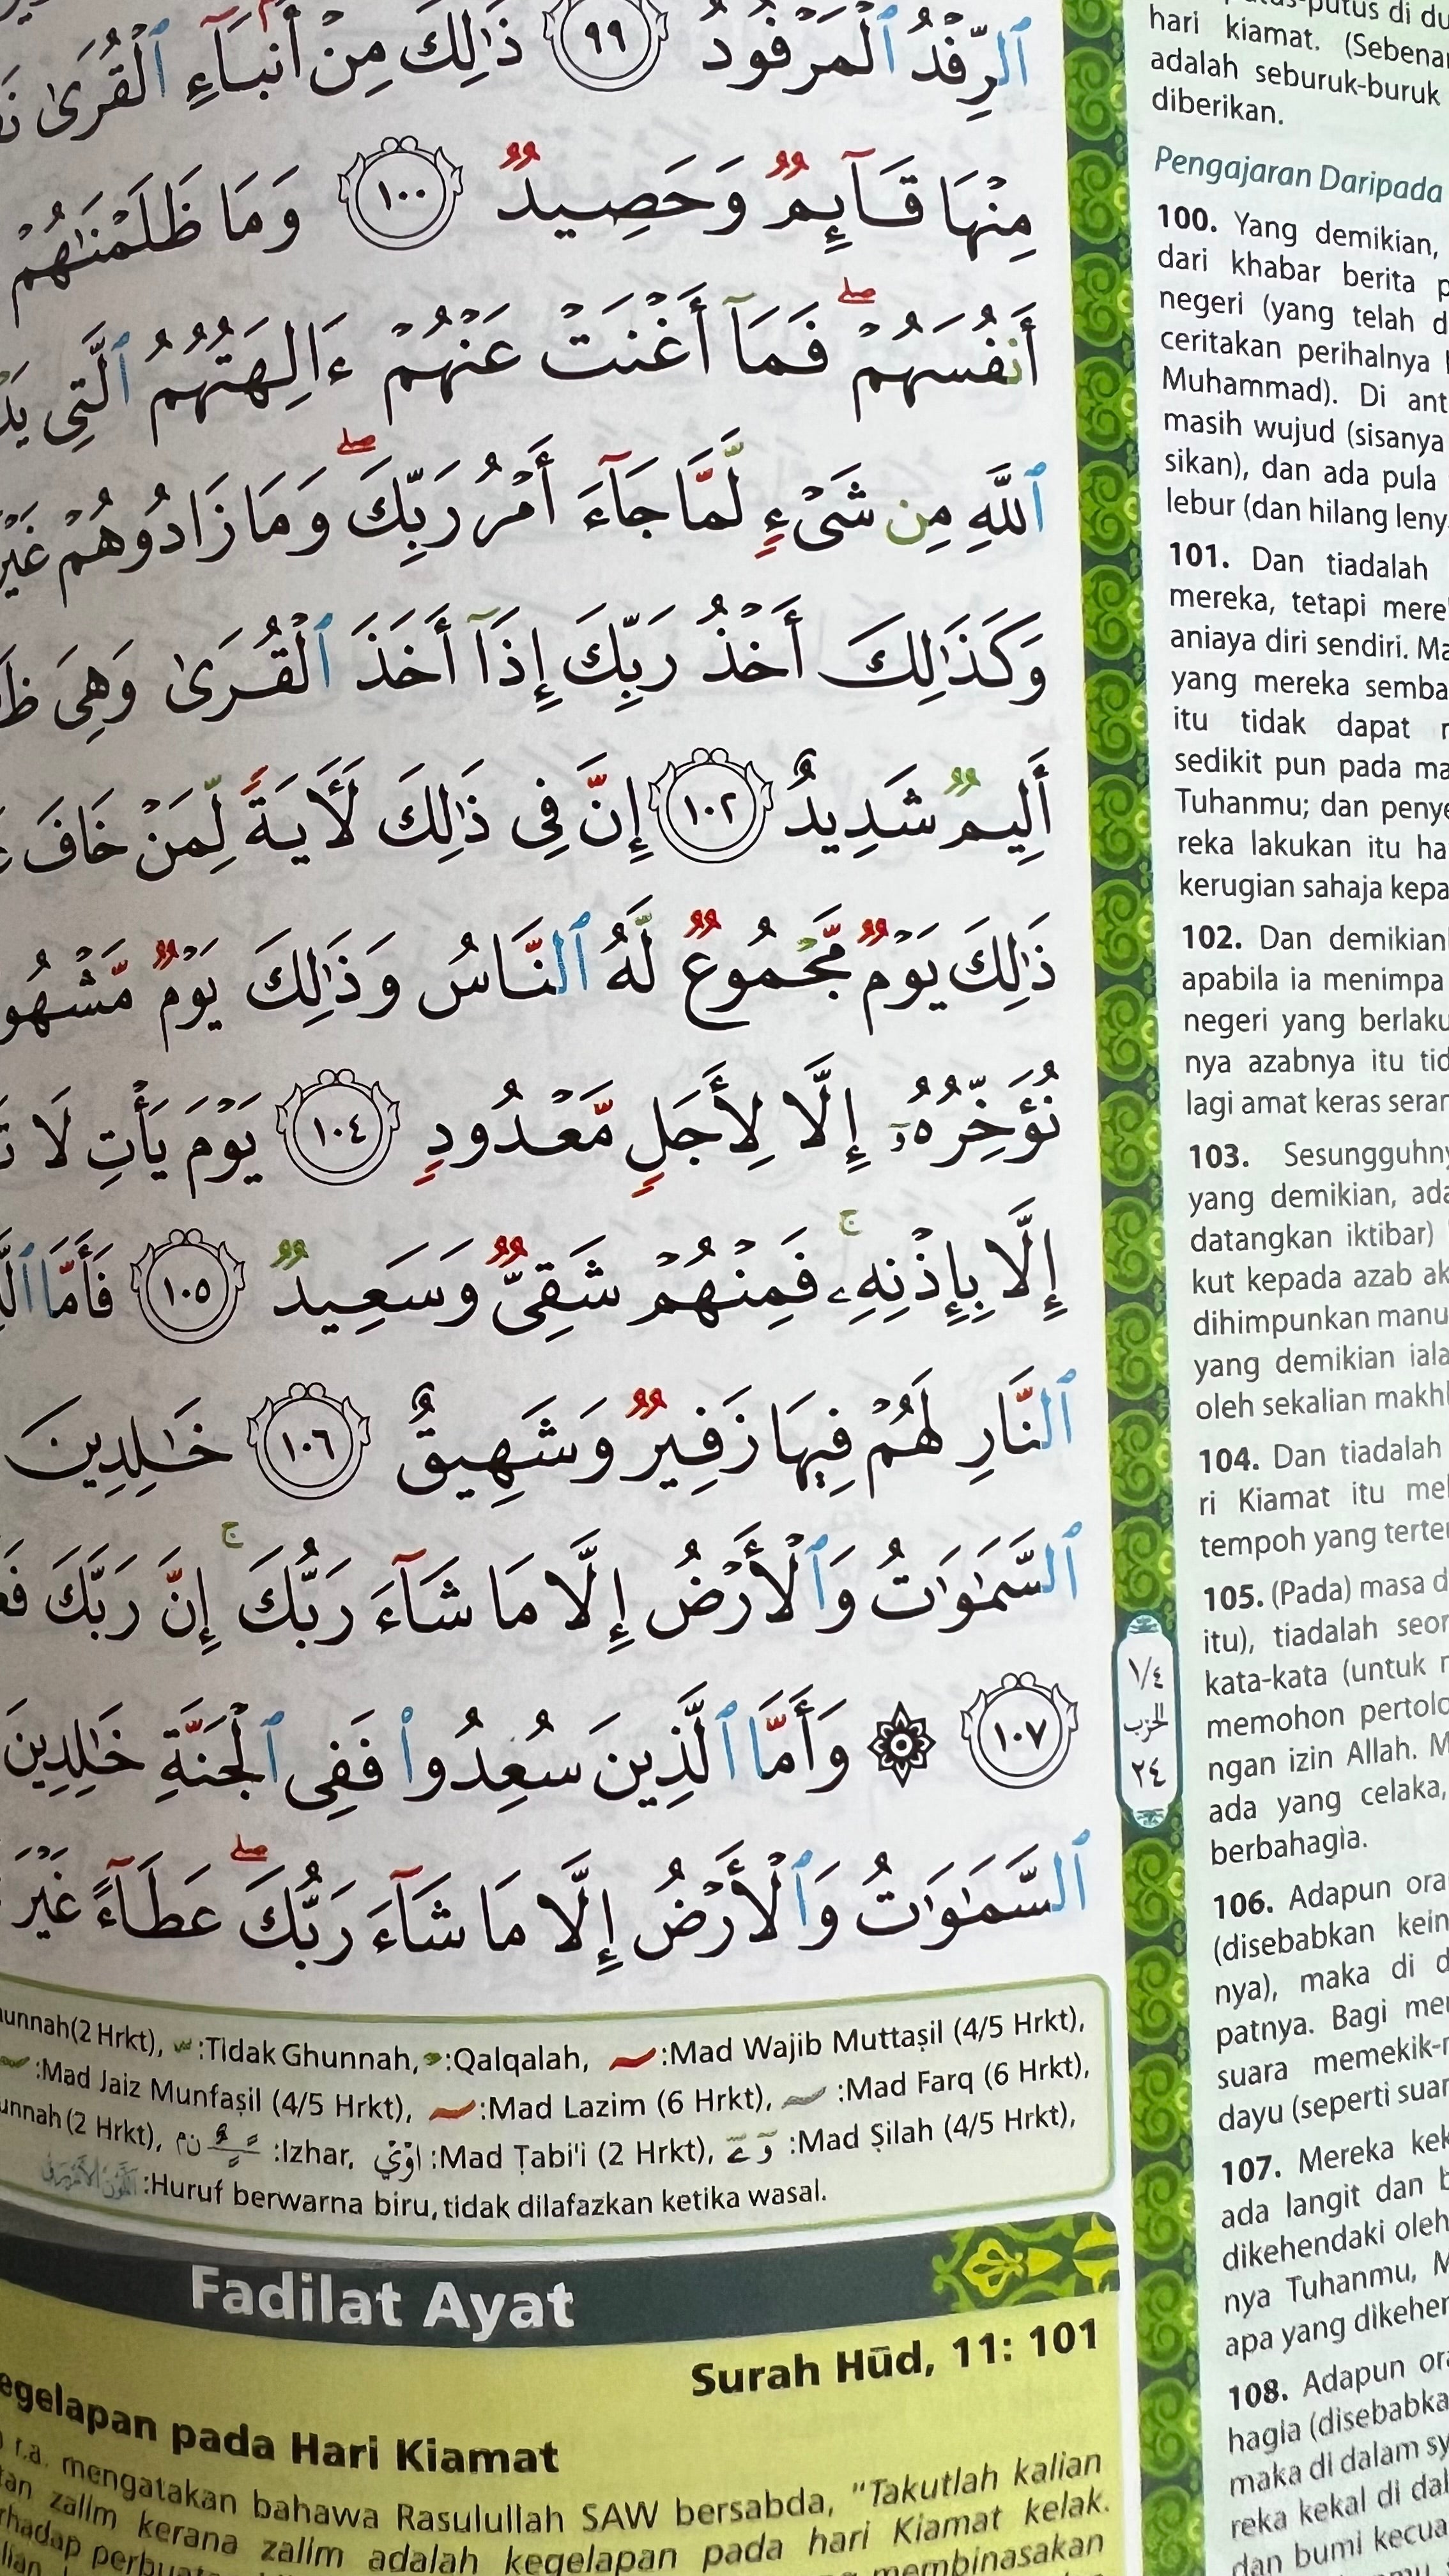 ٱلرِّفْدُ ٱلْمَرْفُودُ ٩٩ ذَٰلِكَ مِنْ أَنۢبَآءِ ٱلْقُرَىٰ
مِنْهَا قَآئِمٌ وَحَصِيدٌ ١٠٠ وَمَا ظَلَمْنَٰهُمْ
أَنفُسَهُمْ ۖ فَمَآ أَغْنَتْ عَنْهُمْ ءَالِهَتُهُمُ ٱلَّتِى
ٱللَّهِ مِن شَىْءٍ لَّمَّا جَآءَ أَمْرُ رَبِّكَ ۖ وَمَا زَادُوهُمْ غَيْرَ
وَكَذَٰلِكَ أَخْذُ رَبِّكَ إِذَآ أَخَذَ ٱلْقُرَىٰ وَهِىَ
أَلِيمٌ شَدِيدٌ ١٠٢ إِنَّ فِى ذَٰلِكَ لَأَيَةً لِّمَنْ خَافَ
ذَٰلِكَ يَوْمٌ مَّجْمُوعٌ لَّهُ ٱلنَّاسُ وَذَٰلِكَ يَوْمٌ
نُؤَخِّرُهُۥٓ إِلَّا لِأَجَلٍ مَّعْدُودٍ ١٠٤ يَوْمَ يَأْتِ لَا
إِلَّا بِإِذْنِهِۦ ۚ فَمِنْهُمْ شَقِىٌّ وَسَعِيدٌ ١٠٥ فَأَمَّا
ٱلنَّارِ لَهُمْ فِيهَا زَفِيرٌ وَشَهِيقٌ ١٠٦ خَٰلِدِينَ
ٱلسَّمَٰوَٰتُ وَٱلْأَرْضُ إِلَّا مَا شَآءَ رَبُّكَ ۚ إِنَّ رَبَّكَ
١٠٧ ۞ وَأَمَّا ٱلَّذِينَ سُعِدُوا۟ فَفِى ٱلْجَنَّةِ خَٰلِدِينَ
ٱلسَّمَٰوَٰتُ وَٱلْأَرْضُ إِلَّا مَا شَآءَ رَبُّكَ ۖ عَطَآءً غَيْرَ
(2 Hrkt), :Tidak Ghunnah, :Qalqalah, :Mad Wajib Muttaṣil (4/5 Hrkt),
:Mad Jaiz Munfaṣil (4/5 Hrkt), :Mad Lazim (6 Hrkt), :Mad Farq (6 Hrkt),
(2 Hrkt), :Izhar, :Mad Ṭabi'i (2 Hrkt), :Mad Ṣilah (4/5 Hrkt),
:Huruf berwarna biru, tidak dilafazkan ketika wasal.
Fadilat Ayat
Surah Hūd, 11: 101
pada Hari Kiamat
r.a. mengatakan bahawa Rasulullah SAW bersabda, "Takutlah kalian
zalim kerana zalim adalah kegelapan pada hari Kiamat kelak.
membinasakan
١/٤
الحزب
٢٤
di
hari kiamat.
adalah seburuk-buruk
diberikan.
Pengajaran Daripada
100. Yang demikian,
dari khabar berita
negeri (yang telah
ceritakan perihalnya
Muhammad). Di
masih wujud (sisanya
sikan), dan ada pula
lebur (dan hilang
101. Dan tiadalah
mereka, tetapi
aniaya diri sendiri.
yang mereka
itu tidak dapat
sedikit pun pada
Tuhanmu; dan
reka lakukan itu
kerugian sahaja
102. Dan
apabila ia menimpa
negeri yang
nya azabnya itu
lagi amat keras
103.
yang demikian,
datangkan iktibar)
kut kepada azab
dihimpunkan
yang demikian
oleh sekalian
104. Dan tiadalah
ri Kiamat itu
tempoh yang
105. (Pada) masa
itu), tiadalah
kata-kata (untuk
memohon
ngan izin Allah.
ada yang celaka,
berbahagia.
106. Adapun
(disebabkan
nya), maka di
patnya. Bagi
suara
dayu (seperti
107. Mereka
ada langit dan
dikehendaki
nya Tuhanmu,
apa yang
108. Adapun
hagia
maka di dalam
reka kekal di
dan bumi